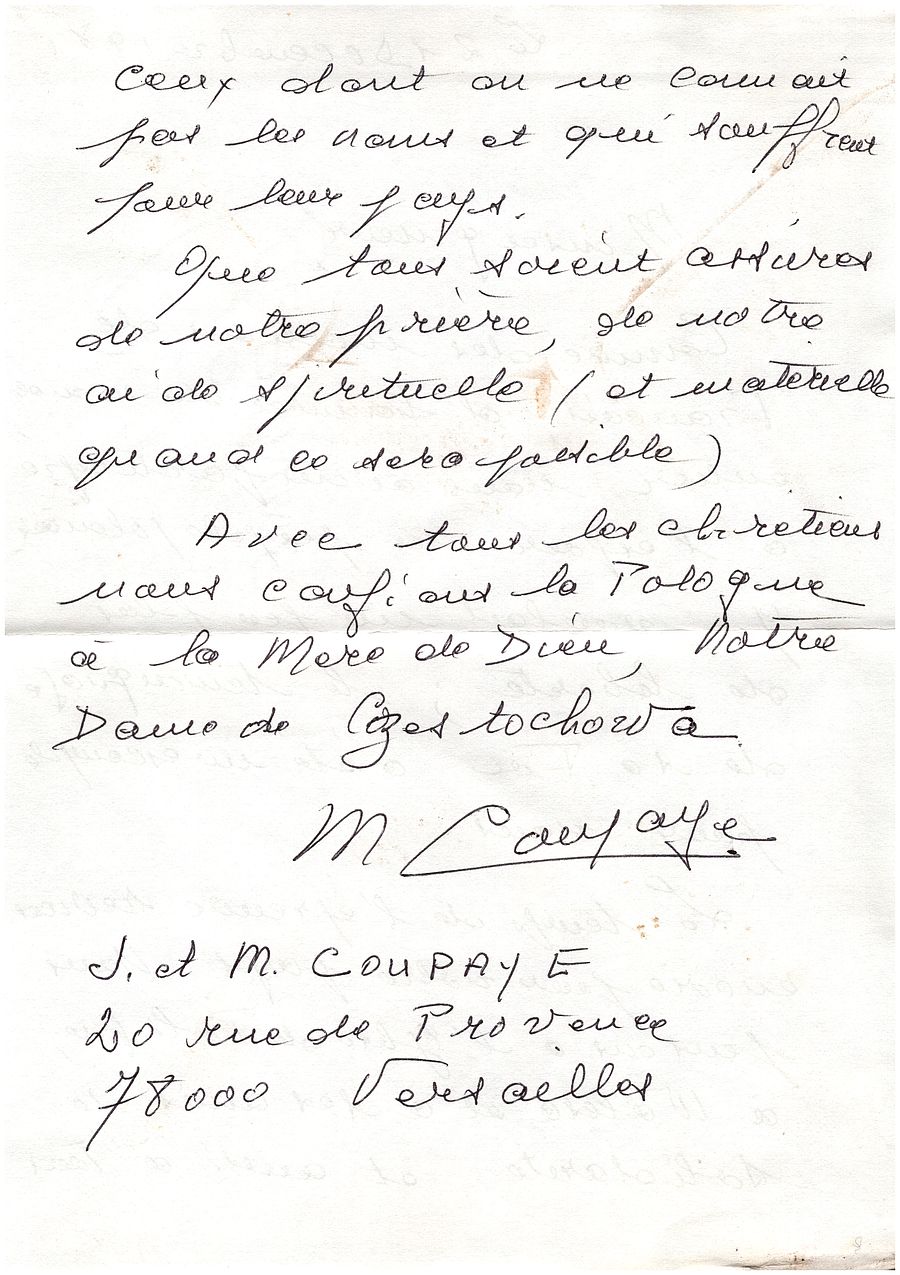 ceux dont on ne connait
pas les noms et qui souffrent
pour leur pays.
Que tous soient assurés
de notre prière, de notre
aide spirituelle (et matérielle
quand ce sera possible)
Avec tous les chrétiens
nous confions la Pologne
à la Mère de Dieu, Notre
Dame de Czestochowa
M Coupaye
J. et M. COUPAYE
20 rue de Provence
78000 Versailles